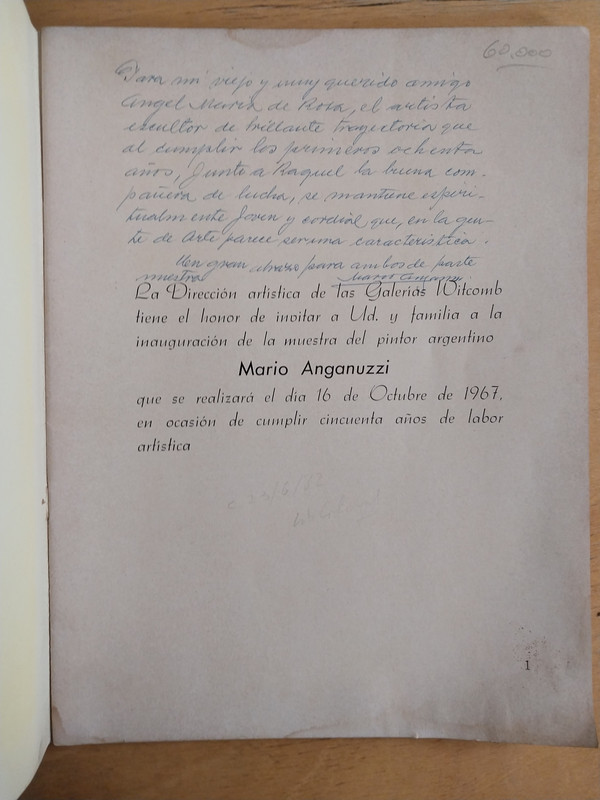 60.000
Para mi viejo y muy querido amigo
Angel María de Rosa, el artista
escultor de brillante trayectoria que
al cumplir los primeros ochenta
años, junto a Raquel la buena com-
pañera de lucha, se mantiene espiri-
tualmente joven y cordial que, en la gen-
te de Arte parece ser una característica.
Un gran abrazo para ambos de parte
nuestra
La Dirección artística de las Galerías Witcomb
tiene el honor de invitar a Ud. y familia a la
inauguración de la muestra del pintor argentino
Mario Anganuzzi
que se realizará el día 16 de Octubre de 1967,
en ocasión de cumplir cincuenta años de labor
artística
1